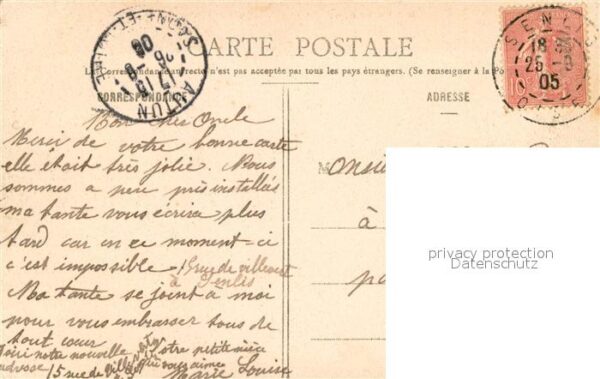 CARTE POSTALE
La Correspondance au recto n'est pas acceptée par tous les pays étrangers. (Se renseigner à la Po
CORRESPONDANCE
ADRESSE
AUTUN
SAONE-ET-LOIRE
SENLIS
OISE
18
25
05
Mon cher Oncle
Merci de votre bonne carte
elle était très jolie. Nous
sommes a peu près installés
ma tante vous écrira plus
tard car en ce moment-ci
c'est impossible
15 rue de villevert
à Senlis
Ma tante se joint à moi
pour vous embrasser tous de
tout cœur
Votre petite nièce
qui vous aime
Marie Louise
Voici notre nouvelle
adresse 15 rue de
Monsieu
à
pa
privacy protection
Datenschutz